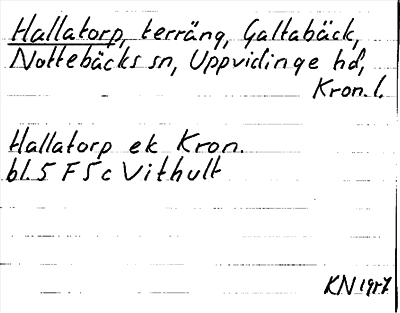 Hallatorp, terräng, Galtabäck,
Nottebäcks sn, Uppvidinge hd,
Kron. l.
Hallatorp ek Kron.
bl. 5 F 5 c Vithult
KN